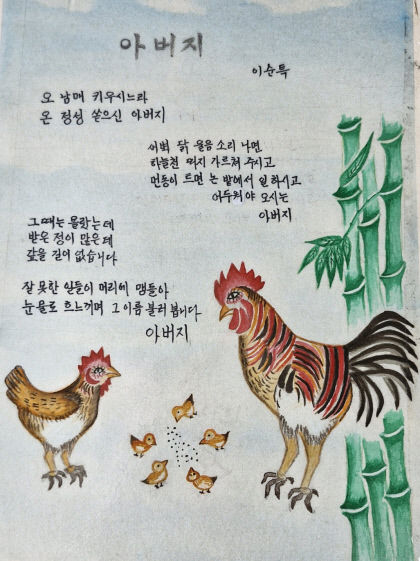 아버지
이순특
오 남매 키우시느라
온 정성 쏟으신 아버지
새벽 닭 울음 소리 나면
하늘천 따지 가르쳐 주시고
먼동이 트면 논 밭에서 일 하시고
어두워야 오시는
아버지
그때는 몰랐는데
받은 정이 많은데
갚을 길이 없습니다
잘 못한 일들이 머리에 맴돌아
눈물로 흐느끼며 그 이름 불러 봅니다
아버지